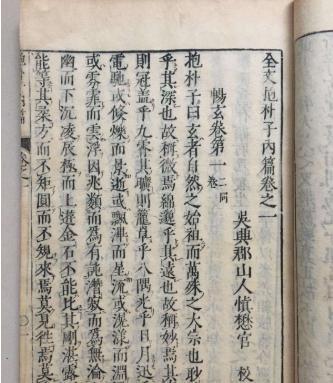 全文抱朴子內篇卷之一
吳興郡山人慎懋官 校
暢玄卷第一 二同卷
抱朴子曰玄者自然之始祖而萬殊之大宗也眇
乎其深也故稱微焉綿邈乎其遠也故稱妙焉其
則冠蓋乎九霄其曠則籠罩乎八隅光乎日月迅
電馳或倏爍而景逝或飄滭而星流或滉漾於淵
或雰霏而雲浮因兆類而爲有託潛寂而爲無淪
幽而下沉凌辰極而上遊金石不能比其剛湛露
能等其柔方而不矩圓而不規來焉莫見往焉莫